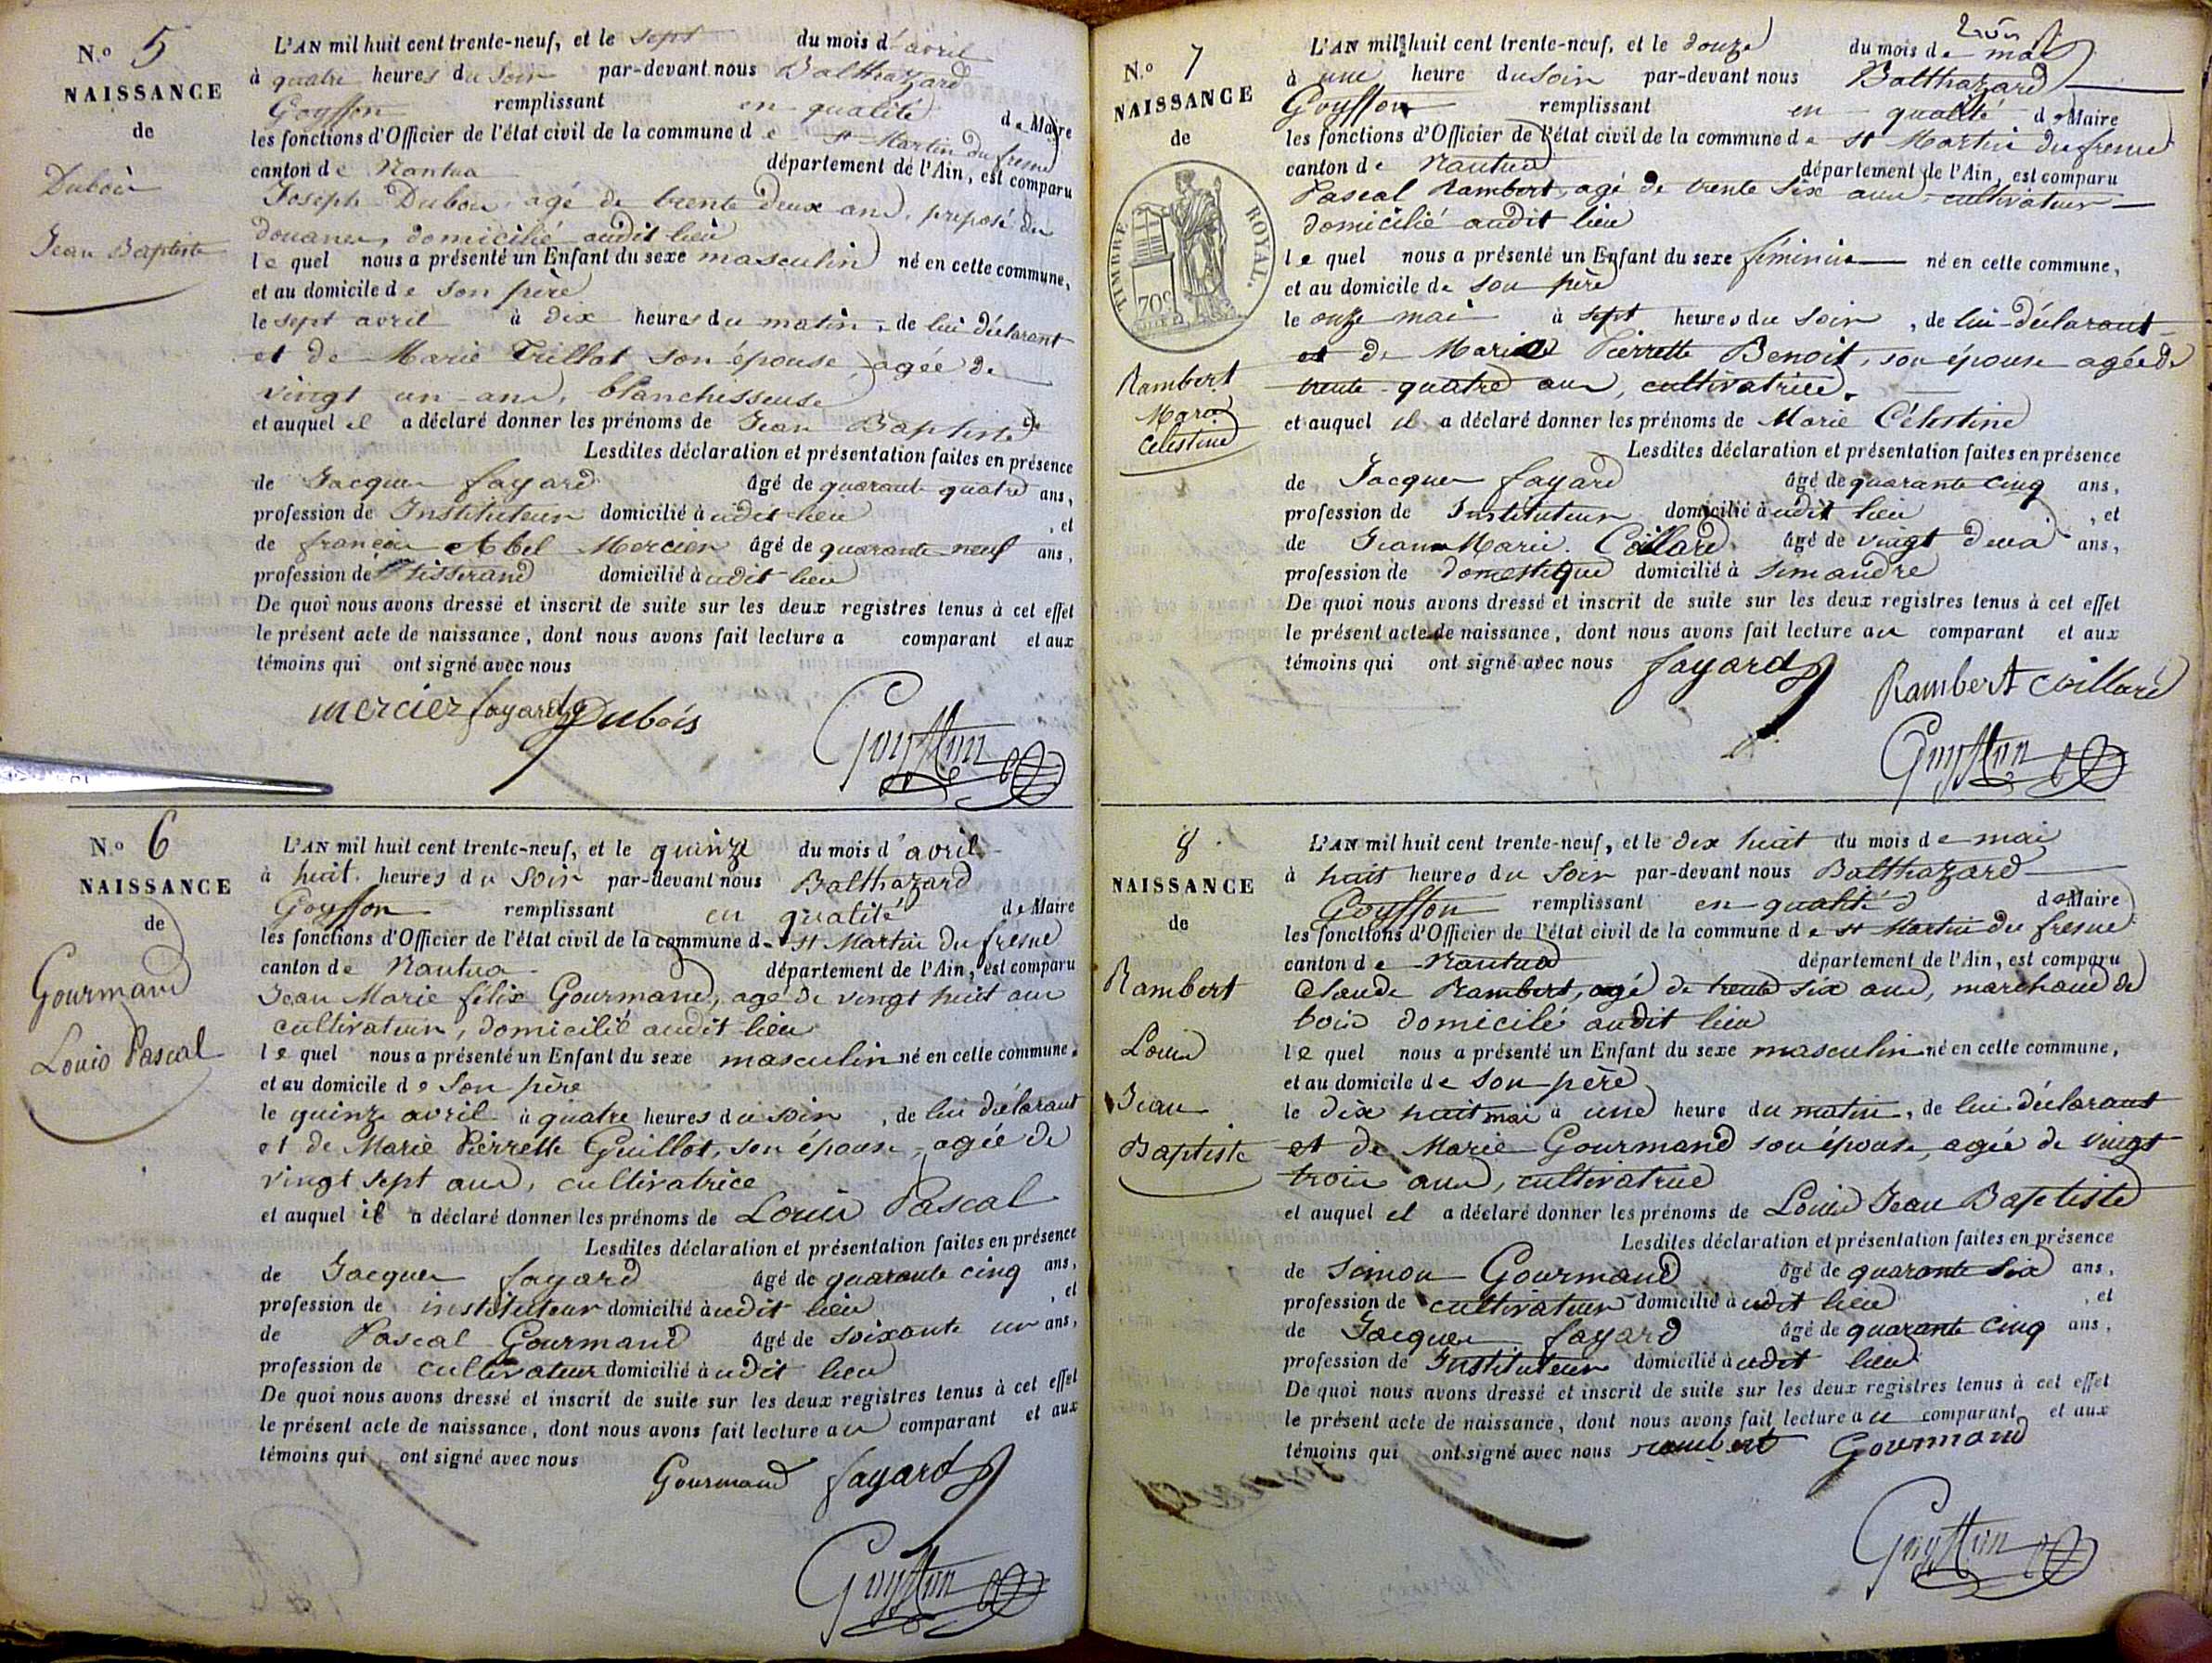 N.° 5
NAISSANCE
de
Dubois
Jean Baptiste
L'AN mil huit cent trente-neuf, et le sept du mois d'avril
à quatre heures du soir par-devant nous Balthazard
Goyffon remplissant en qualité de Maire
les fonctions d'Officier de l'état civil de la commune de St Martin du fresne
canton de Nantua département de l'Ain, est comparu
Joseph Dubois, agé de trente deux ans, préposé des
douanes, domicilié audit lieu
lequel nous a présenté un Enfant du sexe masculin né en cette commune,
et au domicile de son père
le sept avril à dix heures du matin, de lui déclarant
et de Marie Trillat son épouse, agée de
vingt un ans, blanchisseuse
et auquel il a déclaré donner les prénoms de Jean Baptiste
Lesdites déclaration et présentation faites en présence
de Jacques fayard âgé de quarante quatre ans,
profession de Instituteur domicilié audit lieu, et
de françois Abel Mercier âgé de quarante neuf ans,
profession de tisserand domicilié audit lieu
De quoi nous avons dressé et inscrit de suite sur les deux registres tenus à cet effet
le présent acte de naissance, dont nous avons fait lecture a comparant et aux
témoins qui ont signé avec nous
mercier fayard Dubois
Goyffon
N.° 6
NAISSANCE
de
Gourmand
Louis Pascal
L'AN mil huit cent trente-neuf, et le quinze du mois d'avril
à huit heures du soir par-devant nous Balthazard
Goyffon remplissant en qualité de Maire
les fonctions d'Officier de l'état civil de la commune de St Martin du fresne
canton de Nantua département de l'Ain, est comparu
Jean Marie félix Gourmand, agé de vingt huit ans
cultivateur, domicilié audit lieu
lequel nous a présenté un Enfant du sexe masculin né en cette commune,
et au domicile de son père
le quinze avril à quatre heures du soir, de lui déclarant
et de Marie Pierrette Guillot, son épouse, agée de
vingt sept ans, cultivatrice
et auquel il a déclaré donner les prénoms de Louis Pascal
Lesdites déclaration et présentation faites en présence
de Jacques fayard âgé de quarante cinq ans,
profession de instituteur domicilié audit lieu, et
de Pascal Gourmand âgé de soixante un ans,
profession de cultivateur domicilié audit lieu
De quoi nous avons dressé et inscrit de suite sur les deux registres tenus à cet effet
le présent acte de naissance, dont nous avons fait lecture au comparant et aux
témoins qui ont signé avec nous
Gourmand fayard
Goyffon
N.° 7
NAISSANCE
de
TIMBRE ROYAL.
70c
Rambert
Marie
Celestine
L'AN mil huit cent trente-neuf, et le douze du mois de mai
à une heure du soir par-devant nous Balthazard
Goyffon remplissant en qualité de Maire
les fonctions d'Officier de l'état civil de la commune de St Martin du fresne
canton de Nantua département de l'Ain, est comparu
Pascal Rambert, agé de trente six ans, cultivateur
domicilié audit lieu
lequel nous a présenté un Enfant du sexe féminin né en cette commune,
et au domicile de son père
le onze mai à sept heures du soir, de lui déclarant
et de Marie Pierrette Benoit, son épouse agée de
trente quatre ans, cultivatrice.
et auquel il a déclaré donner les prénoms de Marie Célestine
Lesdites déclaration et présentation faites en présence
de Jacques fayard âgé de quarante cinq ans,
profession de Instituteur domicilié audit lieu, et
de Jean Marie Coillard âgé de vingt deux ans,
profession de domestique domicilié à simandre
De quoi nous avons dressé et inscrit de suite sur les deux registres tenus à cet effet
le présent acte de naissance, dont nous avons fait lecture au comparant et aux
témoins qui ont signé avec nous fayard
Rambert coillard
Goyffon
8
NAISSANCE
de
Rambert
Louis
Jean
Baptiste
L'AN mil huit cent trente-neuf, et le dix huit du mois de mai
à huit heures du soir par-devant nous Balthazard
Goyffon remplissant en qualité de Maire
les fonctions d'Officier de l'état civil de la commune de St Martin du fresne
canton de Nantua département de l'Ain, est comparu
Claude Rambert, agé de trente six ans, marchand de
bois domicilé audit lieu
lequel nous a présenté un Enfant du sexe masculin né en cette commune,
et au domicile de son père
le dix huit mai à une heure du matin, de lui déclarant
et de Marie Gourmand son épouse, agée de vingt
trois ans, cultivatrice
et auquel il a déclaré donner les prénoms de Louis Jean Baptiste
Lesdites déclaration et présentation faites en présence
de Simon Gourmand âgé de quarante six ans,
profession de cultivateur domicilié audit lieu, et
de Jacques fayard âgé de quarante cinq ans,
profession de Instituteur domicilié audit lieu
De quoi nous avons dressé et inscrit de suite sur les deux registres tenus à cet effet
le présent acte de naissance, dont nous avons fait lecture au comparant et aux
témoins qui ont signé avec nous rambert Gourmand
Goyffon